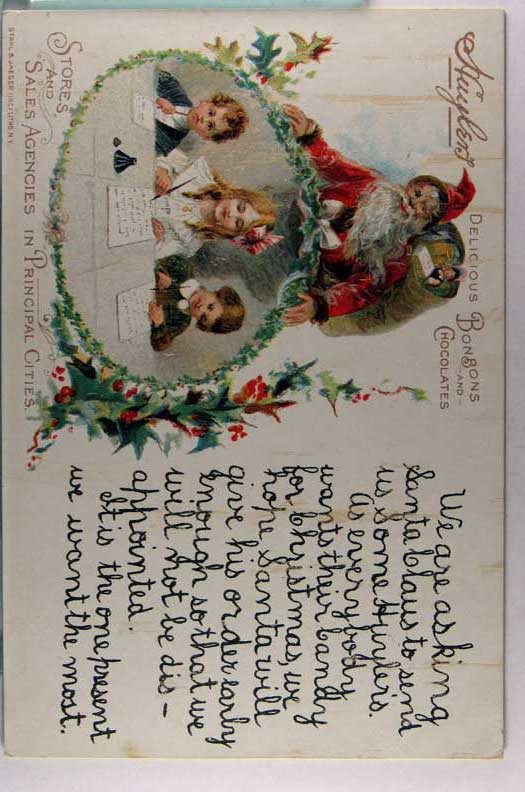 Huyler's
DELICIOUS BONBONS
—AND—
CHOCOLATES
STORES
AND
SALES AGENCIES IN PRINCIPAL CITIES.
STAHL & JAEGER N.Y.
We are asking
Santa Claus to send
us some Huyler's.
As everybody
wants their Candy
for Christmas, we
hope Santa will
give his order early
enough so that we
will not be dis-
appointed.
It is the one present
we want the most.